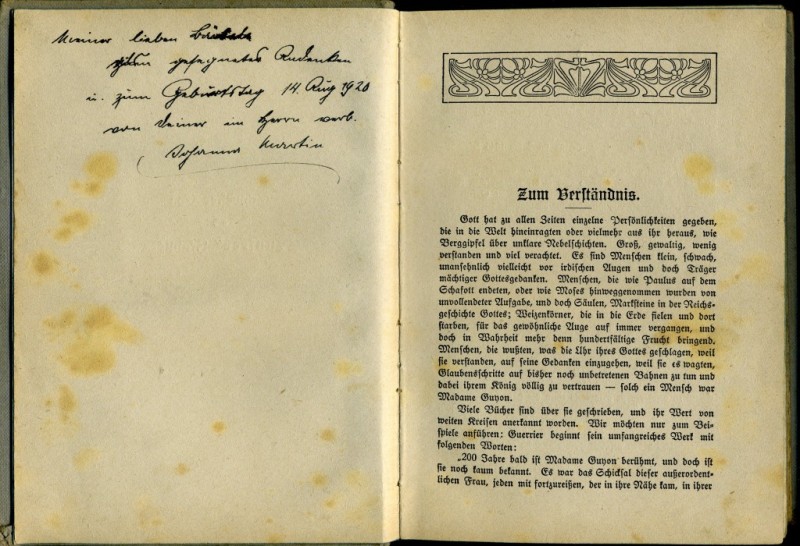 Meiner lieben
zum gesegneten Andenken
u. zum Geburtstag 14. Aug 1920
von deiner im Herrn verb.
Johanna Martin
Zum Verständnis.
Gott hat zu allen Zeiten einzelne Persönlichkeiten gegeben,
die in die Welt hineinragten oder vielmehr aus ihr heraus, wie
Berggipfel über unklare Nebelschichten. Groß, gewaltig, wenig
verstanden und viel verachtet. Es sind Menschen klein, schwach,
unansehnlich vielleicht vor irdischen Augen und doch Träger
mächtiger Gottesgedanken. Menschen, die wie Paulus auf dem
Schafott endeten, oder wie Moses hinweggenommen wurden von
unvollendeter Aufgabe, und doch Säulen, Marksteine in der Reichs-
geschichte Gottes; Weizenkörner, die in die Erde fielen und dort
starben, für das gewöhnliche Auge auf immer vergangen, und
doch in Wahrheit mehr denn hundertfältige Frucht bringend.
Menschen, die wußten, was die Uhr ihres Gottes geschlagen, weil
sie verstanden, auf seine Gedanken einzugehen, weil sie es wagten,
Glaubensschritte auf bisher noch unbetretenen Bahnen zu tun und
dabei ihrem König völlig zu vertrauen — solch ein Mensch war
Madame Guyon.
Viele Bücher sind über sie geschrieben, und ihr Wert von
weiten Kreisen anerkannt worden. Wir möchten nur zum Bei-
spiele anführen: Guerrier beginnt sein umfangreiches Werk mit
folgenden Worten:
„200 Jahre bald ist Madame Guyon berühmt, und doch ist
sie noch kaum bekannt. Es war das Schicksal dieser außerordent-
lichen Frau, jeden mit fortzureißen, der in ihre Nähe kam, in ihrer